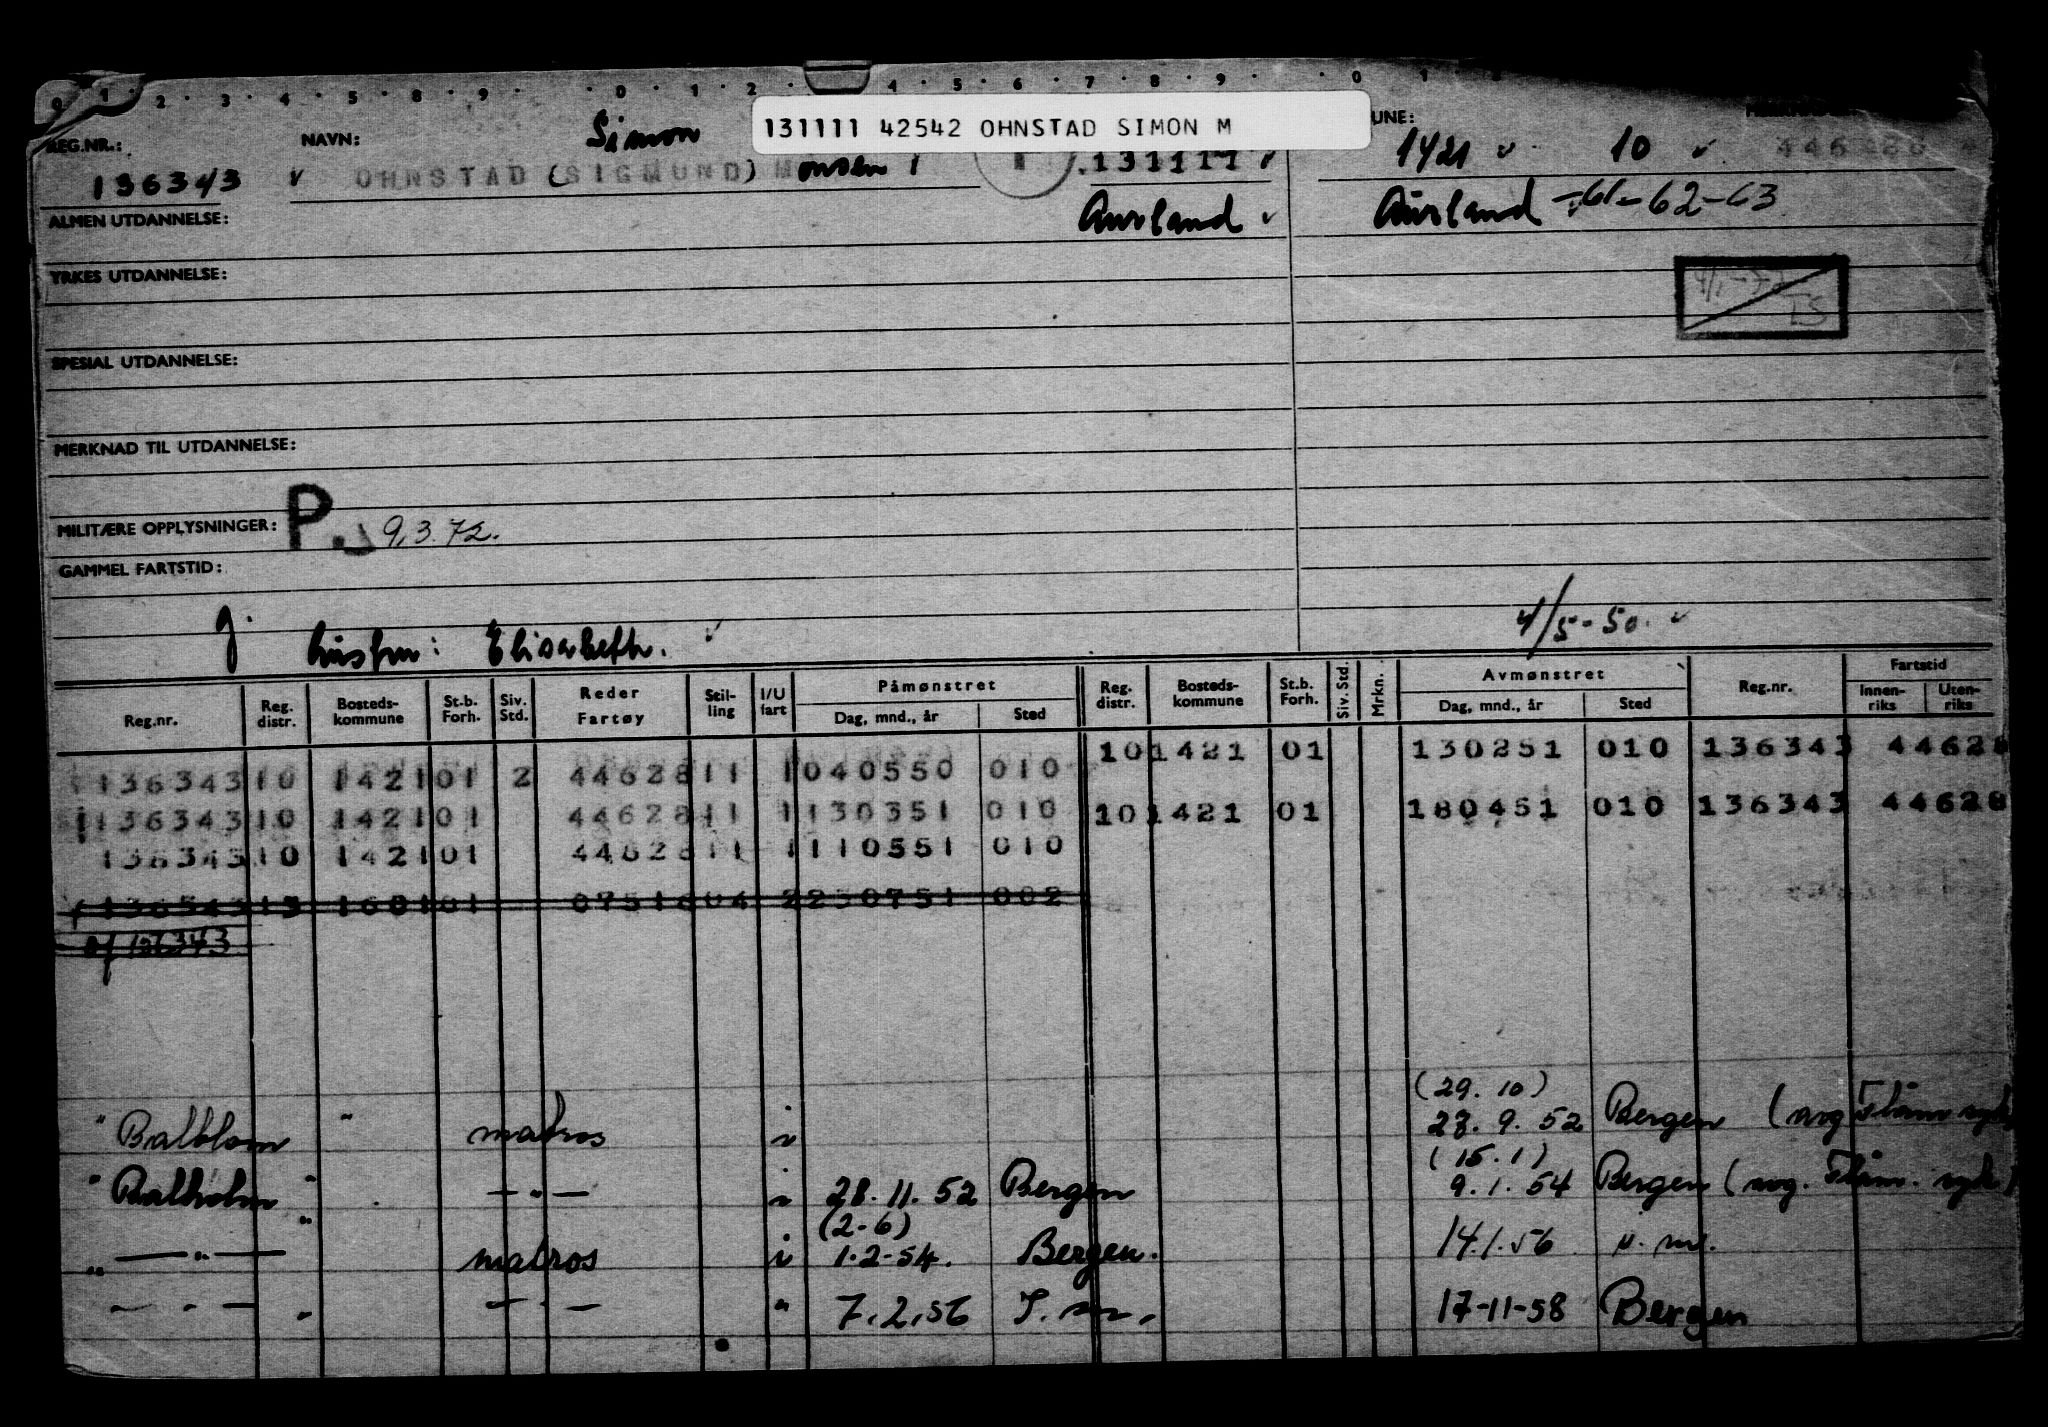 0 1 2 3 4 5 8 9 0 1 2 4 5 6 7 8 9 0 1
131111 42542 OHNSTAD SIMON M
REG.NR.: NAVN: Simon UNE:
136343 v OHNSTAD (SIGMUND) M onsen 131111 v 1421 v 10 v
ALMEN UTDANNELSE: Aurland v Aurland -61-62-63
YRKES UTDANNELSE:
SPESIAL UTDANNELSE:
MERKNAD TIL UTDANNELSE:
MILITÆRE OPPLYSNINGER: P. 9.3.72.
GAMMEL FARTSTID:
g. hustru: Elisabeth. v 4/5-50. v
Reg.nr. Reg. distr. Bosteds-kommune St.b. Forh. Siv. Std. Reder Fartøy Stil-ling I/U fart Påmønstret Dag, mnd., år Sted Reg. distr. Bosteds-kommune St.b. Forh. Siv. Std. Mrkn. Avmønstret Dag, mnd., år Sted Reg.nr. Fartstid Innen-riks Uten-riks
136343 10 1421 01 2 44628 11 1 040550 010 10 1421 01 130251 010 136343 44628
136343 10 1421 01 44628 11 1 130351 010 10 1421 01 180451 010 136343 44628
136343 10 1421 01 44628 11 1 110551 010
136343 13 1601 01 07516 04 2 230751 002
(29. 10)
" Balholm " matros i 27. 9. 52 Bergen (
(15. 1)
" Balholm " — " — i 28. 11. 52 Bergen 9. 1. 54 Bergen (
(2-6)
" — " — " matros i 1.2-54. Bergen. 14.1.56
— " — " — " — " 7.2.56 17-11-58 Bergen